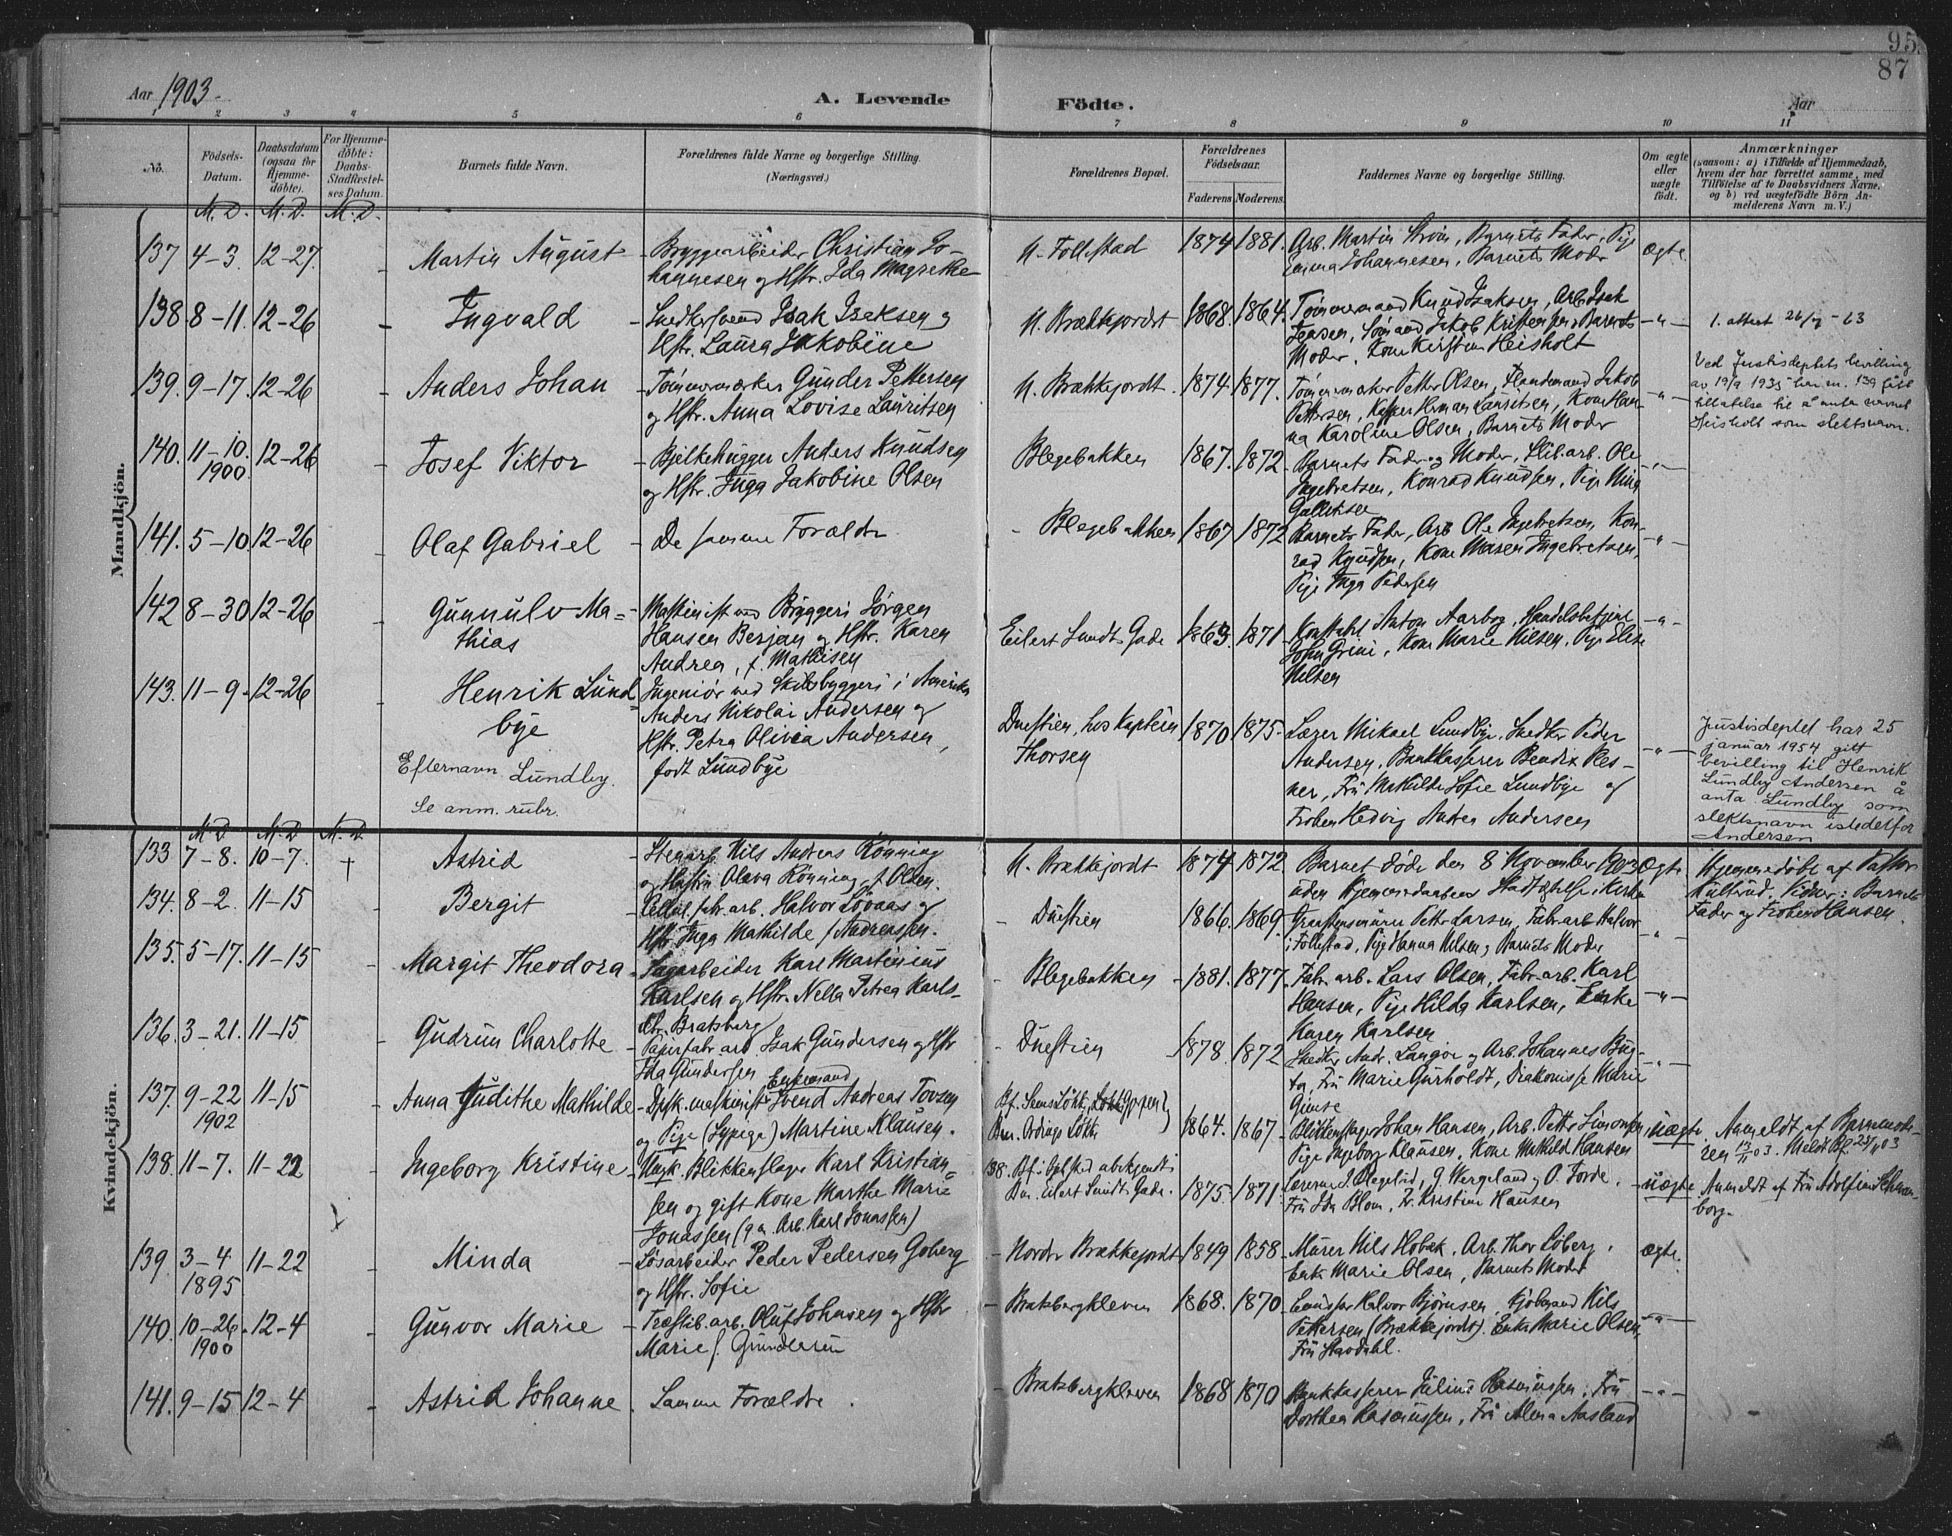 95
87
Aar 1903
A. Levende Födte.
Aar
1 2 3 4 5 6 7 8 9 10 11
No.
Födsels-Datum.
Daabsdatum (ogsaa for Hjemme-döbte).
For Hjemme-döbte: Daabs-Stadfæstel-ses Datum.
Barnets fulde Navn.
Forældrenes fulde Navne og borgerlige Stilling.
(Næringsvei.)
Forældrenes Bopæl.
Forældrenes Födselsaar.
Faderens Moderens
Faddernes Navne og borgerlige Stilling.
Om ægte eller uægte födt.
Anmærkninger
(saasom: a) i Tilfælde af Hjemmedaab, hvem der har forrettet samme, med Tilföielse af to Daabsvidners Navne, og b) ved uægtefödte Börn An-melderens Navn m. V.)
Mandkjön.
M. D. M. D. M. D.
137 4-3. 12-27. Martin August Bryggearbeider Christian Jo-
hannesen og Hstr. Ida Magrethe
N. Follestad 1874 1881. Arb. Martin Barnets Fader, Pige
Emma Johannesen, Barnets Moder ægte.
138 8-11. 12-26 Ingvald Snedkersvend Isak Isaksen og
Hstr. Laura Jakobine
N. Brækkejordet 1868. 1864. Tømmermand Knud Isaksen, Arb. Isak
Jensen, Sømand Jakob Kristensen, Barnets
Moder, Kone Kirstine Heisholt
1. attest 26/7-63
139. 9-17. 12-26 Anders Johan Tømmermærker Gunder Pettersen
og Hstr. Anna Lovise Lauritsen
N. Brækkejordet. 1874. 1877. Tømmermærker Petter Olsen, Jakob
Pettersen, Herman Lauritsen, Kone Han-
na Karoline Olsen, Barnets Moder
Ved Justisdeptets bevilling
av 19/9 1935 har m. 139 fått
tillatelse til å anta navnet
Heisholt som slektsnavn.
140. 11-10. 1900. 12-26 Josef Viktor Bjelkehugger Anders Knudsen
og Hstr. Inga Jakobine Olsen
Blegebakken 1867. 1872. Barnets Fader og Moder, Slib.arb. Ole
Ingebretsen, Konrad Knudsen, Pige Mina
141. 5-10. 12-26 Olaf Gabriel De samme Foræld
Blegebakken 1867 1872 Barnets Fader, Arb. Ole Ingebretsen, Kon-
rad Knudsen, Kone Maren Ingebretsen,
Pige Inga Pedersen
142 8-30 12-26 Gunnulv Ma-
thias
Maskinist ved Bryggeri Jørgen
Hansen Berjan og Hstr. Karen
Andrea, f. Mathisen
Eilert Sundts Gade 1863. 1871. Anton Aarborg, Handelsbetjent
John Grini, Kone Marie Nilsen, Pige Elise
Nilsen
143. 11-9. 12-26 Henrik Lund-
bye
Efternavn Lundby.
Se anm. rubr.
Ingeniør ved Skibsbyggeri i Amerika
Anders Nikolai Andersen og
Hstr. Petra Olivia Andersen,
født Lundbye
Duestien, hos Kaptein
Thorsen
1870 1875. Lærer Mikael Lundbye, Snedker Peder
Andersen, Bankkasserer Bendix Ples-
ner, Fru Mathilde Sofie Lundbye og
Frøken Hedvig Andrea Andersen
Justisdeptet har 25
januar 1954 gitt
bevilling til Henrik
Lundby Andersen å
anta Lundby som
slektsnavn istedetfor
Andersen
Kvindekjön.
M. D. M. D M. D.
133 7-8. 10-7. † Astrid Nils Andreas Rønning
og Hustru Oleva Rønning f. Olsen.
N. Brækkejordet 1874 1872. Barnet døde den 8 November 1903 ægte.
uden Hjemmedaabens Stadfæstelse i Kirke
Hjemmedøbt af Pastor
Kullerud. Vidner: Barnets
Fader og Frøken Hansen.
134. 8-2. 11-15 Bergit Cellul.fabr.arb. Halvor Lovaas og
Hstr. Inga Mathilde f. Andreassen.
Duestien 1866. 1869. Petter Larsen, Fabr.arb. Halvor
Follestad, Pige Hanna Nilsen, Barnets Moder
135. 5-17. 11-15 Margit Theodora Sagarbeider Karl Martinius
Karlsen og Hstr. Nella Petrea Karls-
Blegebakken 1881. 1877. Fabr.arb. Lars Olsen, Fabr.arb. Karl
Hansen, Pige Hilda Karlsen, Enke
Karen Karlsen
136. 3-21. 11-15 Gudrun Charlotte Bratsberg
Papirfabr.arb Isak Gundersen og Hstr
Ida Gundersen
Duestien 1878. 1872 Snedker Andr. Langøe og Arb. Johannes Bug-
ta, Fru Marie Gurholdt, Diakonisse Marie
Gimse
137. 9-22 1902 11-15 Anna Judithe Mathilde Enkemand
Svend Andreas Tovsen
og Pige (Sypige) Martine Klausen.
Bf.
Bm.
1864. 1867 Blikkenslager Johan Hansen, Arb. Petter Simonsen
Pige Ingeborg Klausen, Kone Mathilde Hansen
uægte. Anmeldt af Barnemode-
ren 13/11 03. Meldt Bf. 23/11 03
138. 11-7. 11-22 Ingeborg Kristine Ungk. Blikkenslager Karl Kristian-
sen og gift Kone Marthe Marie
Jonassen (g. m. Arb. Karl Jonassen)
138. Bf.
Bm. Eilert Sundts Gade.
1875. 1871. Lærerne J. Flagelid, G. Wergeland og O. Forde.
Fru Ida Blom, Fr. Kristine Hansen
uægte Anmeldt af Fru Adolfine
borg.
139. 3-4 1895 11-22 Minda Løsarbeider Peder Pedersen Goberg
og Hstr. Sofie
Nordre Brækkejordet 1849 1858. Murer Nils Hobæk, Arb. Thor Loberg,
Enke Marie Olsen, Barnets Moder ægte.
140. 10-26. 1900 12-4 Gunvor Marie Træslib.arb. Oluf Johnsen og Hstr
Marie f. Gundersen
Bratsbergkleven 1868. 1870 Halvor Bjørnsen, Kjøbmand Nils
Pettersen (Brækkejordet). Enke Marie Olsen,
Fru Stavdahl.
141. 9-15 12-4 Astrid Johanne Samme Forældre.
Bratsbergkleven 1868 1870 Bankkasserer Julius Rasmussen, Fru
Dorthea Rasmussen, Frk Alma Aasland